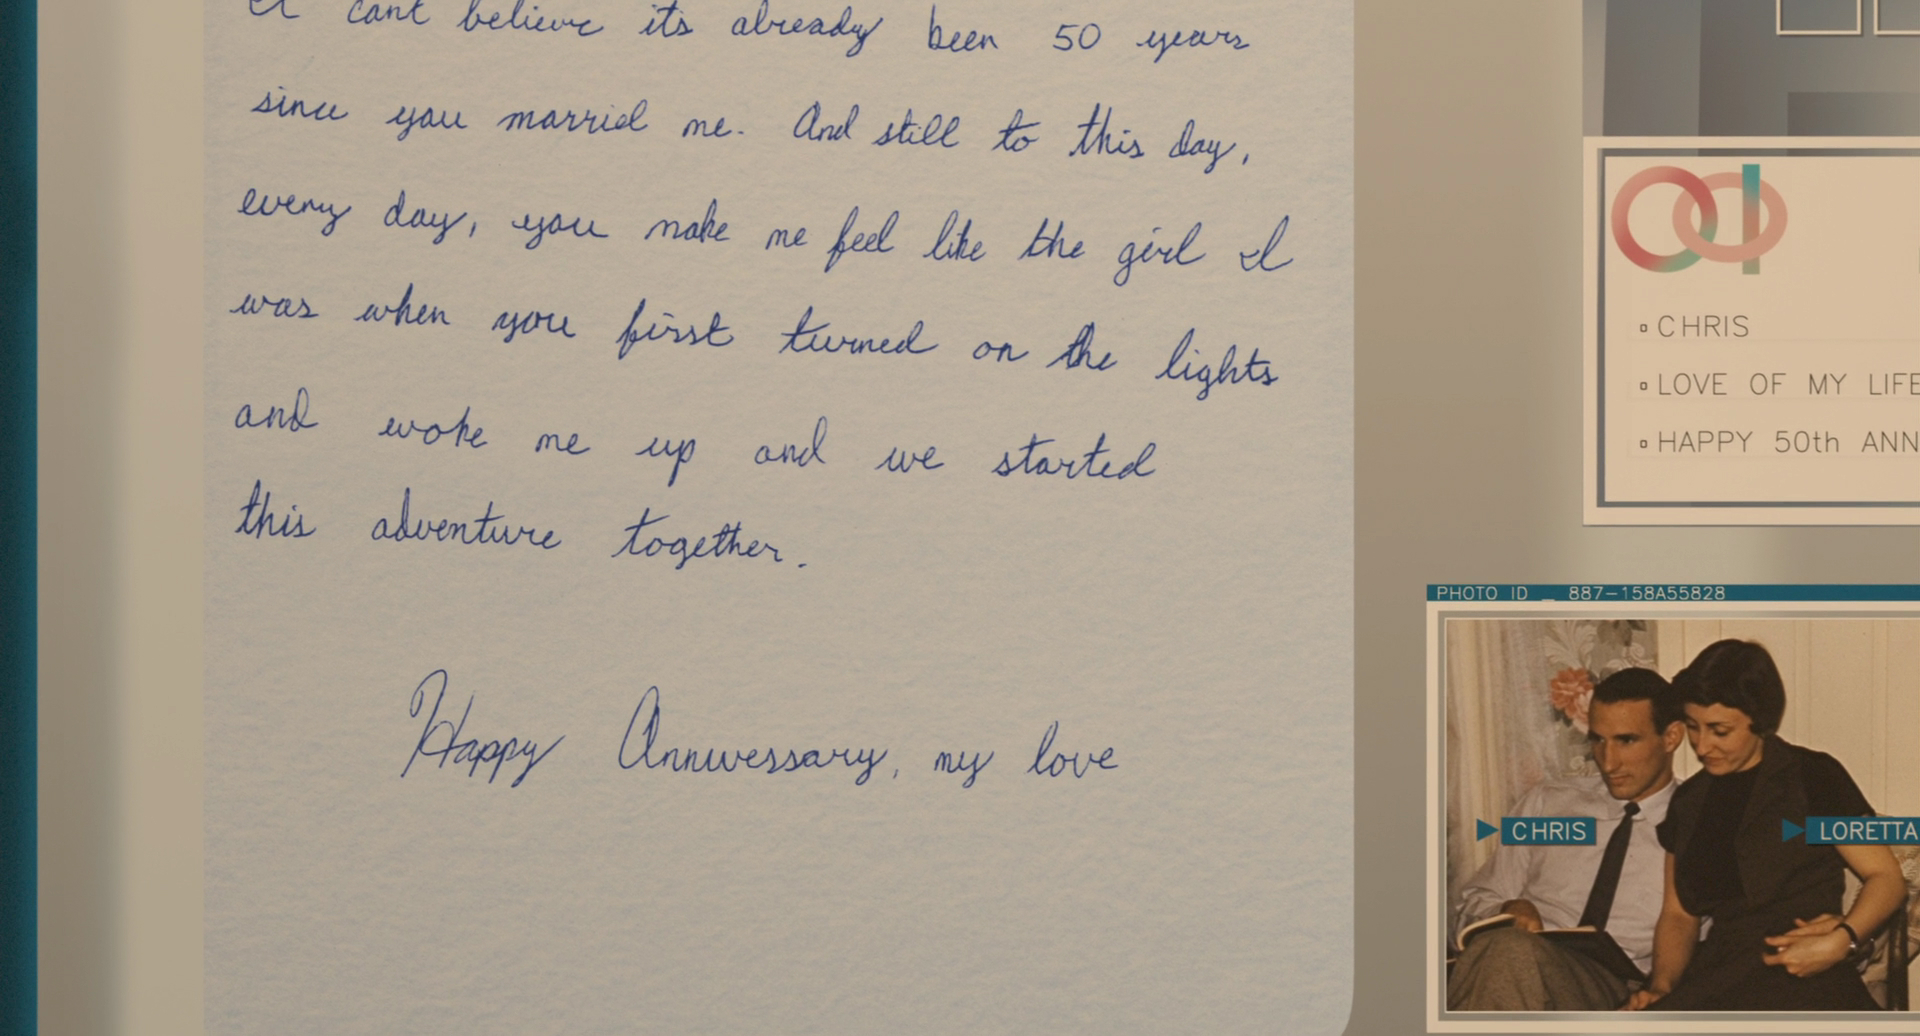 I cant believe its already been 50 years
since you married me. And still to this day,
every day, you make me feel like the girl I
was when you first turned on the lights
and woke me up and we started
this adventure together.
Happy Anniversary, my love
CHRIS
LOVE OF MY LIFE
HAPPY 50th ANN
PHOTO ID _ 887-158A55828
CHRIS
LORETTA